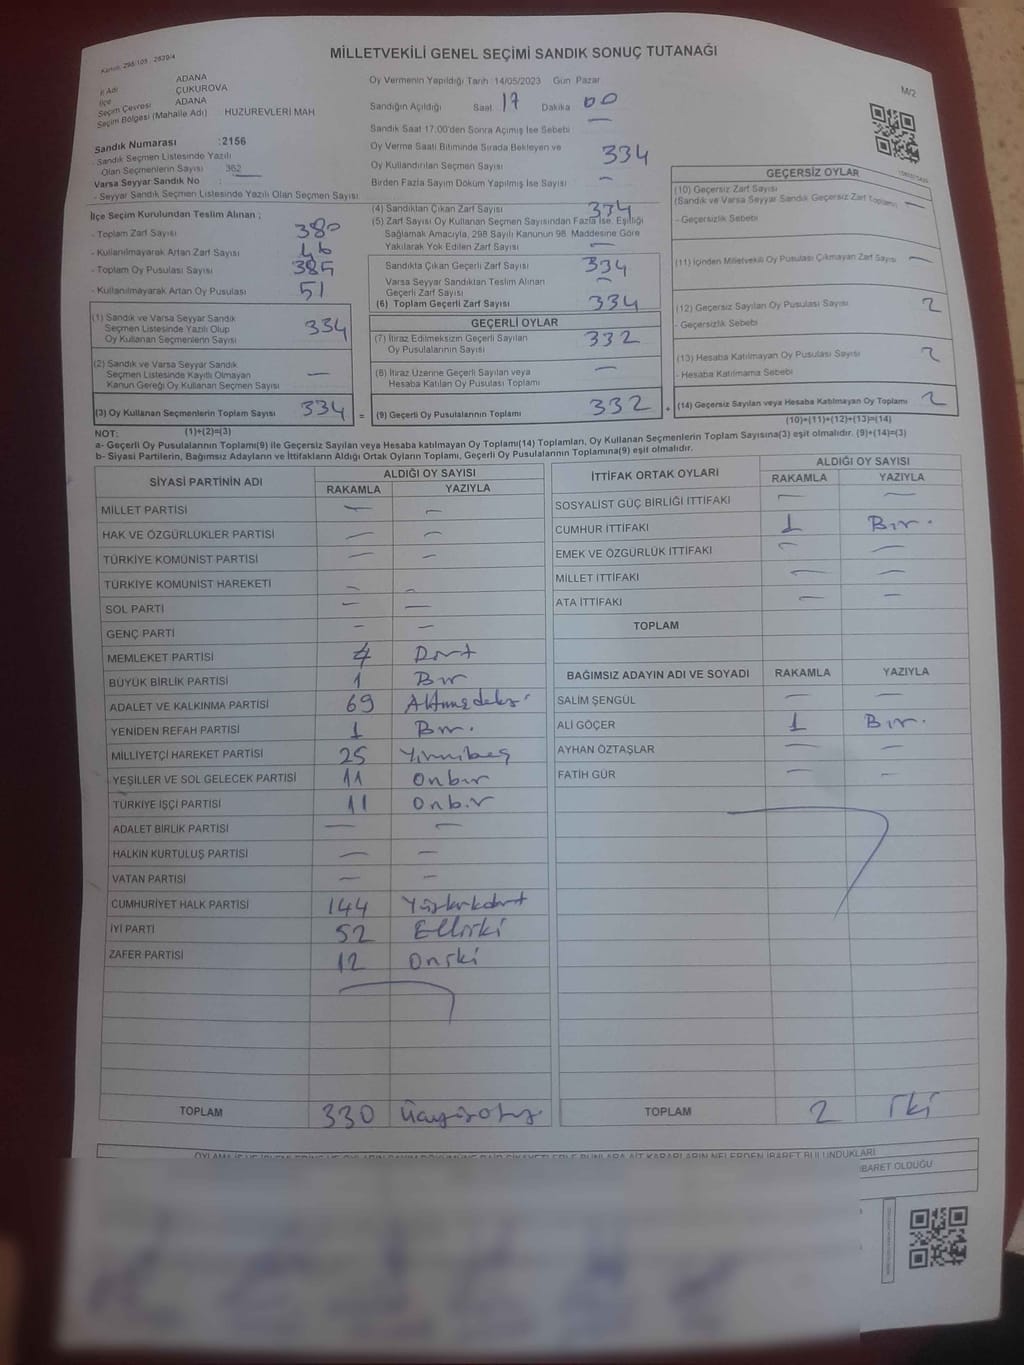 MİLLETVEKİLİ GENEL SEÇİMİ SANDIK SONUÇ TUTANAĞI
M/2
İl Adı ADANA
İlçe ÇUKUROVA
Seçim Çevresi ADANA
Seçim Bölgesi (Mahalle Adı) HUZUREVLERİ MAH
Sandık Numarası :2156
- Sandık Seçmen Listesinde Yazılı
Olan Seçmenlerin Sayısı 362
Varsa Seyyar Sandık No
- Seyyar Sandık Seçmen Listesinde Yazılı Olan Seçmen Sayısı
Oy Vermenin Yapıldığı Tarih :14/05/2023 Gün Pazar
Sandığın Açıldığı Saat 17 Dakika 00
Sandık Saat 17:00'den Sonra Açımış İse Sebebi : —
Oy Verme Saati Bitiminde Sırada Bekleyen ve
Oy Kullandırılan Seçmen Sayısı 334
Birden Fazla Sayım Döküm Yapılmış İse Sayısı —
İlçe Seçim Kurulundan Teslim Alınan ;
- Toplam Zarf Sayısı 380
- Kullanılmayarak Artan Zarf Sayısı 46
- Toplam Oy Pusulası Sayısı 385
- Kullanılmayarak Artan Oy Pusulası 51
(1) Sandık ve Varsa Seyyar Sandık
Seçmen Listesinde Yazılı Olup
Oy Kullanan Seçmenlerin Sayısı 334
(2) Sandık ve Varsa Seyyar Sandık
Seçmen Listesinde Kayıtlı Olmayan
Kanun Gereği Oy Kullanan Seçmen Sayısı —
(3) Oy Kullanan Seçmenlerin Toplam Sayısı 334 =
(1)+(2)=(3)
(4) Sandıktan Çıkan Zarf Sayısı 334
(5) Zarf Sayısı Oy Kullanan Seçmen Sayısından Fazla İse, Eşitliği
Sağlamak Amacıyla, 298 Sayılı Kanunun 98. Maddesine Göre
Yakılarak Yok Edilen Zarf Sayısı —
Sandıkta Çıkan Geçerli Zarf Sayısı 334
Varsa Seyyar Sandıktan Teslim Alınan
Geçerli Zarf Sayısı —
(6) Toplam Geçerli Zarf Sayısı 334
GEÇERLİ OYLAR
(7) İtiraz Edilmeksizin Geçerli Sayılan
Oy Pusulalarının Sayısı 332
(8) İtiraz Üzerine Geçerli Sayılan veya
Hesaba Katılan Oy Pusulası Toplamı —
(9) Geçerli Oy Pusulalarının Toplamı 332 +
GEÇERSİZ OYLAR
(10) Geçersiz Zarf Sayısı
(Sandık ve Varsa Seyyar Sandık Geçersiz Zarf Toplamı) —
- Geçersizlik Sebebi
(11) İçinden Milletvekili Oy Pusulası Çıkmayan Zarf Sayısı —
(12) Geçersiz Sayılan Oy Pusulası Sayısı 2
- Geçersizlik Sebebi
(13) Hesaba Katılmayan Oy Pusulası Sayısı 2
- Hesaba Katılmama Sebebi
(14) Geçersiz Sayılan veya Hesaba Katılmayan Oy Toplamı 2
(10)+(11)+(12)+(13)=(14)
NOT:
a- Geçerli Oy Pusulalarının Toplamı(9) ile Geçersiz Sayılan veya Hesaba katılmayan Oy Toplamı(14) Toplamları, Oy Kullanan Seçmenlerin Toplam Sayısına(3) eşit olmalıdır. (9)+(14)=(3)
b- Siyasi Partilerin, Bağımsız Adayların ve İttifakların Aldığı Ortak Oyların Toplamı, Geçerli Oy Pusulalarının Toplamına(9) eşit olmalıdır.
SİYASİ PARTİNİN ADI ALDIĞI OY SAYISI
RAKAMLA YAZIYLA
MİLLET PARTİSİ — —
HAK VE ÖZGÜRLÜKLER PARTİSİ — —
TÜRKİYE KOMÜNİST PARTİSİ — —
TÜRKİYE KOMÜNİST HAREKETİ — —
SOL PARTİ — —
GENÇ PARTİ — —
MEMLEKET PARTİSİ 4 Dört
BÜYÜK BİRLİK PARTİSİ 1 Bir
ADALET VE KALKINMA PARTİSİ 69
YENİDEN REFAH PARTİSİ 1 Bir.
MİLLİYETÇİ HAREKET PARTİSİ 25 Yirmibeş
YEŞİLLER VE SOL GELECEK PARTİSİ 11 Onbir
TÜRKİYE İŞÇİ PARTİSİ 11 Onbir
ADALET BİRLİK PARTİSİ — —
HALKIN KURTULUŞ PARTİSİ — —
VATAN PARTİSİ — —
CUMHURİYET HALK PARTİSİ 144 Yüzkırkdört
İYİ PARTİ 52 Elliiki
ZAFER PARTİSİ 12 Oniki
TOPLAM 330 Üçyüzotuz.
İTTİFAK ORTAK OYLARI ALDIĞI OY SAYISI
RAKAMLA YAZIYLA
SOSYALİST GÜÇ BİRLİĞİ İTTİFAKI — —
CUMHUR İTTİFAKI 1 Bir.
EMEK VE ÖZGÜRLÜK İTTİFAKI — —
MİLLET İTTİFAKI — —
ATA İTTİFAKI — —
TOPLAM
BAĞIMSIZ ADAYIN ADI VE SOYADI RAKAMLA YAZIYLA
SALİM ŞENGÜL — —
ALİ GÖÇER 1 Bir.
AYHAN ÖZTAŞLAR — —
FATİH GÜR — —
TOPLAM 2 İki
İBARET OLDUĞU